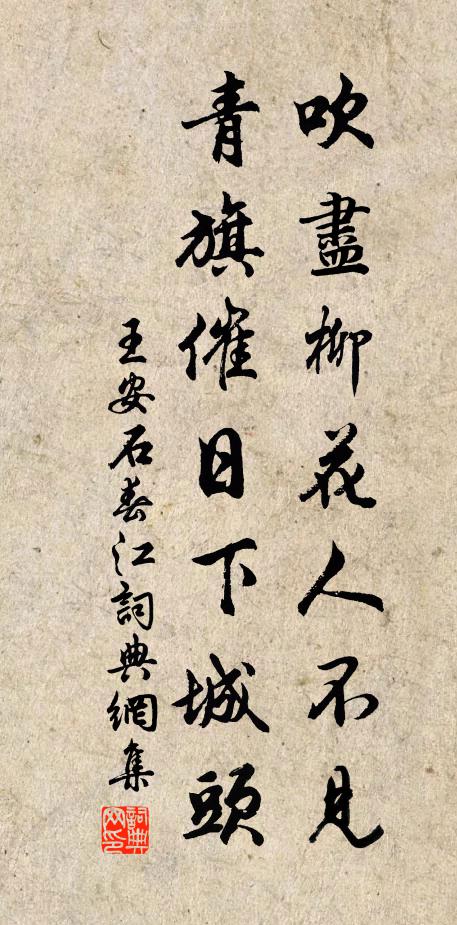 吹盡柳花人不見
青旗催日下城頭
王安石春江詞典網集
詞典網印